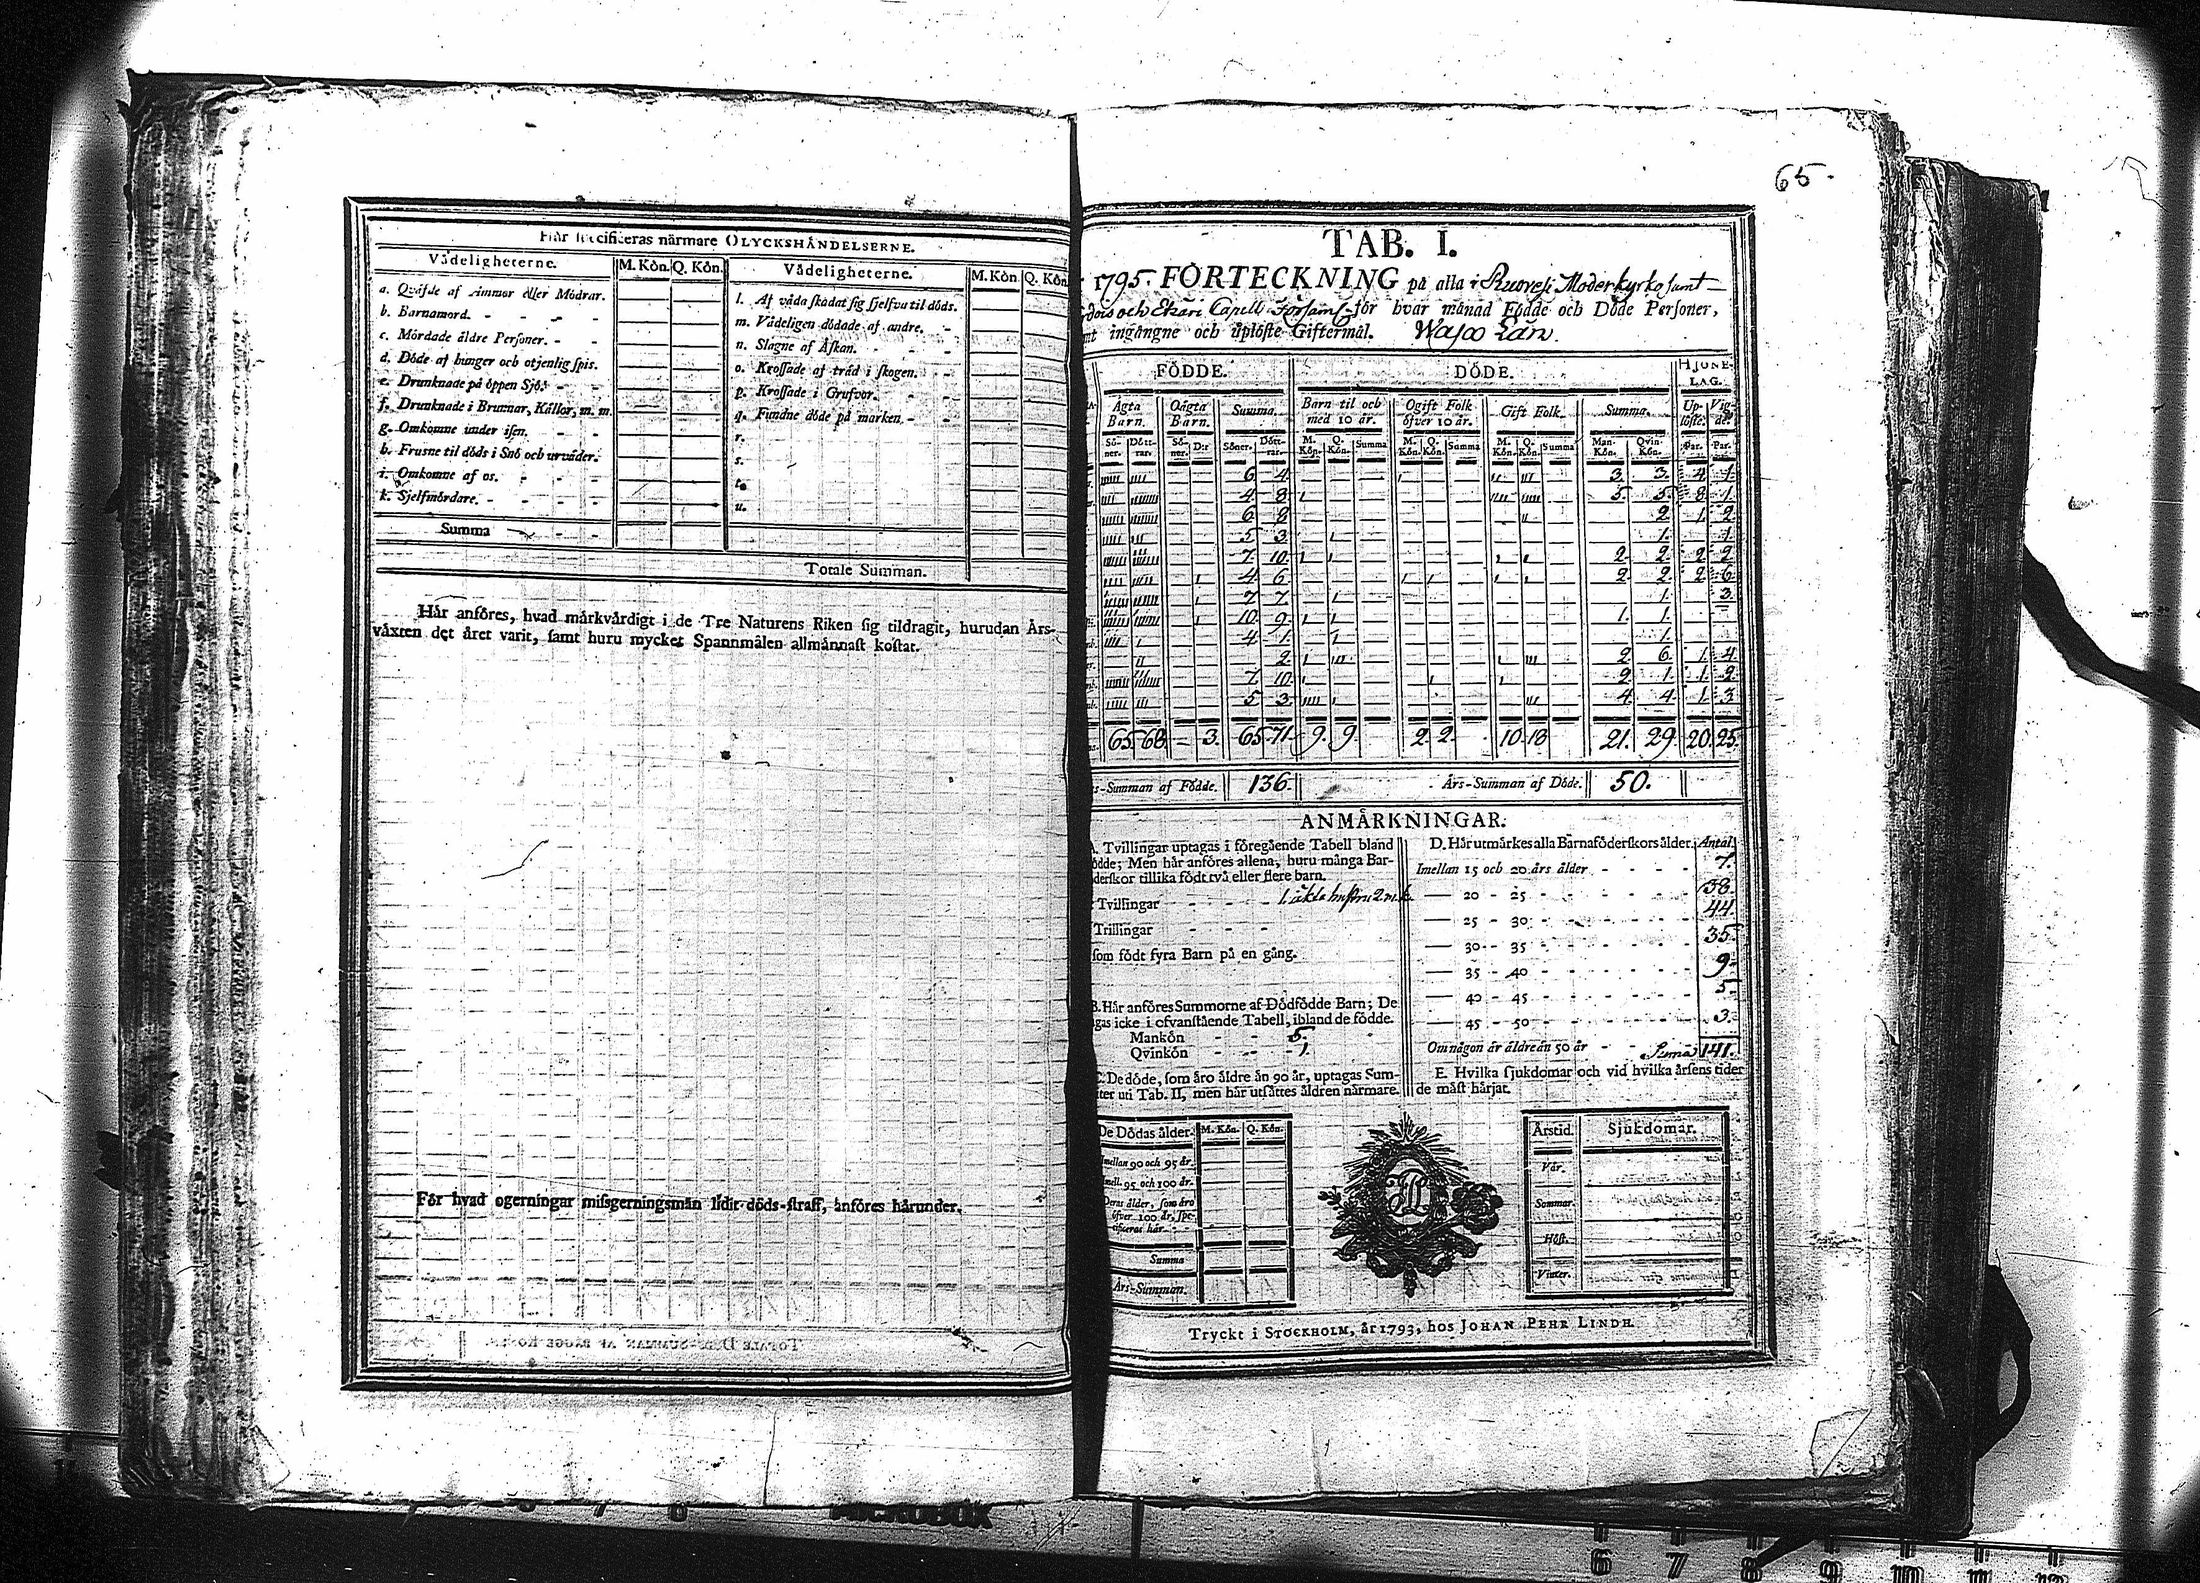 65.
Här specificeras närmare OLYCKSHÄNDELSERNE.
Vådeligheterne. M. Kön. Q. Kön. Vådeligheterne. M. Kön. Q. Kön.
a. Qväfde af Ammor eller Mödrar.
b. Barnamord.
c. Mördade äldre Personer.
d. Döde af hunger och otjenlig spis.
e. Drunknade på öppen Sjö.
f. Drunknade i Brunnar, Källor, m. m.
g. Omkomne under isen.
h. Frusne til döds i Snö och urväder.
i. Omkomne af os.
k. Sjelfmördare.
Summa
l. Af våda skadat sig sjelfva til döds.
m. Vådeligen dödade af andre.
n. Slagne af Åskan.
o. Krossade af träd i skogen.
p. Krossade i Grufvor.
q. Fundne döde på marken.
r.
s.
t.
u.
Totale Summan.
Här anföres, hvad märkvärdigt i de Tre Naturens Riken sig tildragit, hurudan Års-
växten det året varit, samt huru mycket Spannmålen allmännast kostat.
För hvad ogerningar missgerningsmän lidit döds-straff, anföres härunder.
TAB. I.
1795. FÖRTECKNING på alla i Ruovesi Moderkyrko samt
och Etseri Capell Församl. för hvar månad Födde och Döde Personer,
ingångne och uplöste Giftermål. Wasa Län.
FÖDDE. DÖDE. HJONE-
LAG.
Ägta Barn. Oägta Barn. Summa. Barn til och med 10 år. Ogift Folk öfver 10 år. Gift Folk. Summa. Up-löste. Vig-de.
Sö-ner. Dött-rar. Sö-ner. D:r Söner. Dött-rar. M. Kön. Q. Kön. Summa M. Kön. Q. Kön. Summa M. Kön. Q. Kön. Summa Man-Kön. Qvin-Kön. Par. Par.
6 4 3 3 4 1
4 8 5 5 8 1
6 8 2 1 2
5 3 1 1
7 10 2 2 2 2
4 6 2 2 2 6
7 7 1 3
10 9 1 1
4 1 1
2 2 6 1 4
7 10 2 1 1 2
5 3 4 4 1 3
65 68 - 3. 65 71 9. 9 2 2 10 18 21. 29 20. 25.
s-Summan af Födde. 136. Års-Summan af Döde. 50.
ANMÄRKNINGAR.
A. Tvillingar uptagas i föregående Tabell bland
ödde; Men här anföres allena, huru många Bar-
derskor tillika födt två eller flere barn.
Tvillingar 1. äkta hustru 2 m.k.
Trillingar
som födt fyra Barn på en gång.
B. Här anföres Summorne af Dödfödde Barn; De
gas icke i ofvanstående Tabell, ibland de födde.
Mankön 5.
Qvinkön 1.
C. De döde, som äro äldre än 90 år, uptagas Sum-
ter uti Tab. II, men här utsättes åldren närmare.
D. Här utmärkes alla Barnaföderskors ålder. Antal.
Imellan 15 och 20 års ålder 7.
20 - 25 38.
25 - 30 44
30 - 35 35
35 - 40 9
40 - 45 5
45 - 50 3.
Om någon är äldre än 50 år Suma 141.
E. Hvilka sjukdomar och vid hvilka årsens tider
de mäst härjat.
De Dödas ålder. M. Kön. Q. Kön.
mellan 90 och 95 år.
mell. 95 och 100 år.
Deras ålder, som äro
öfver 100 år, spe-
cificeras här.
Summa
Års-Summan.
Årstid. Sjukdomar.
Vår.
Sommar.
Höst.
Vinter.
Tryckt i STOCKHOLM, år 1793, hos JOHAN PEHR LINDH.
MICROBOX
6 7 8 9 10 11 12